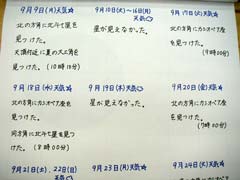 9月9日(月)天気☆
北の方角に北斗七星を
見つけた。
天頂付近に夏の大三角
を見つけた。(10時10分)
9月10日(火)〜16日(月)
天気
星が見えなかった。
9月17日(火)天気☆
北の方角にカシオペア座
を見つけた。
(9時00分)
9月18日(水)天気☆
北の方角にカシオペア座
を見つけた。
同方角に北斗七星を見つ
けた。(8時00分)
9月19日(木)天気
星が見えなかった。
9月20日(金)天気☆
北の方角にカシオペア座
を見つけた。
(7時00分)
9月21日(土)、22日(日)
天気
9月23日(月)天気☆
9月24日(火)天気